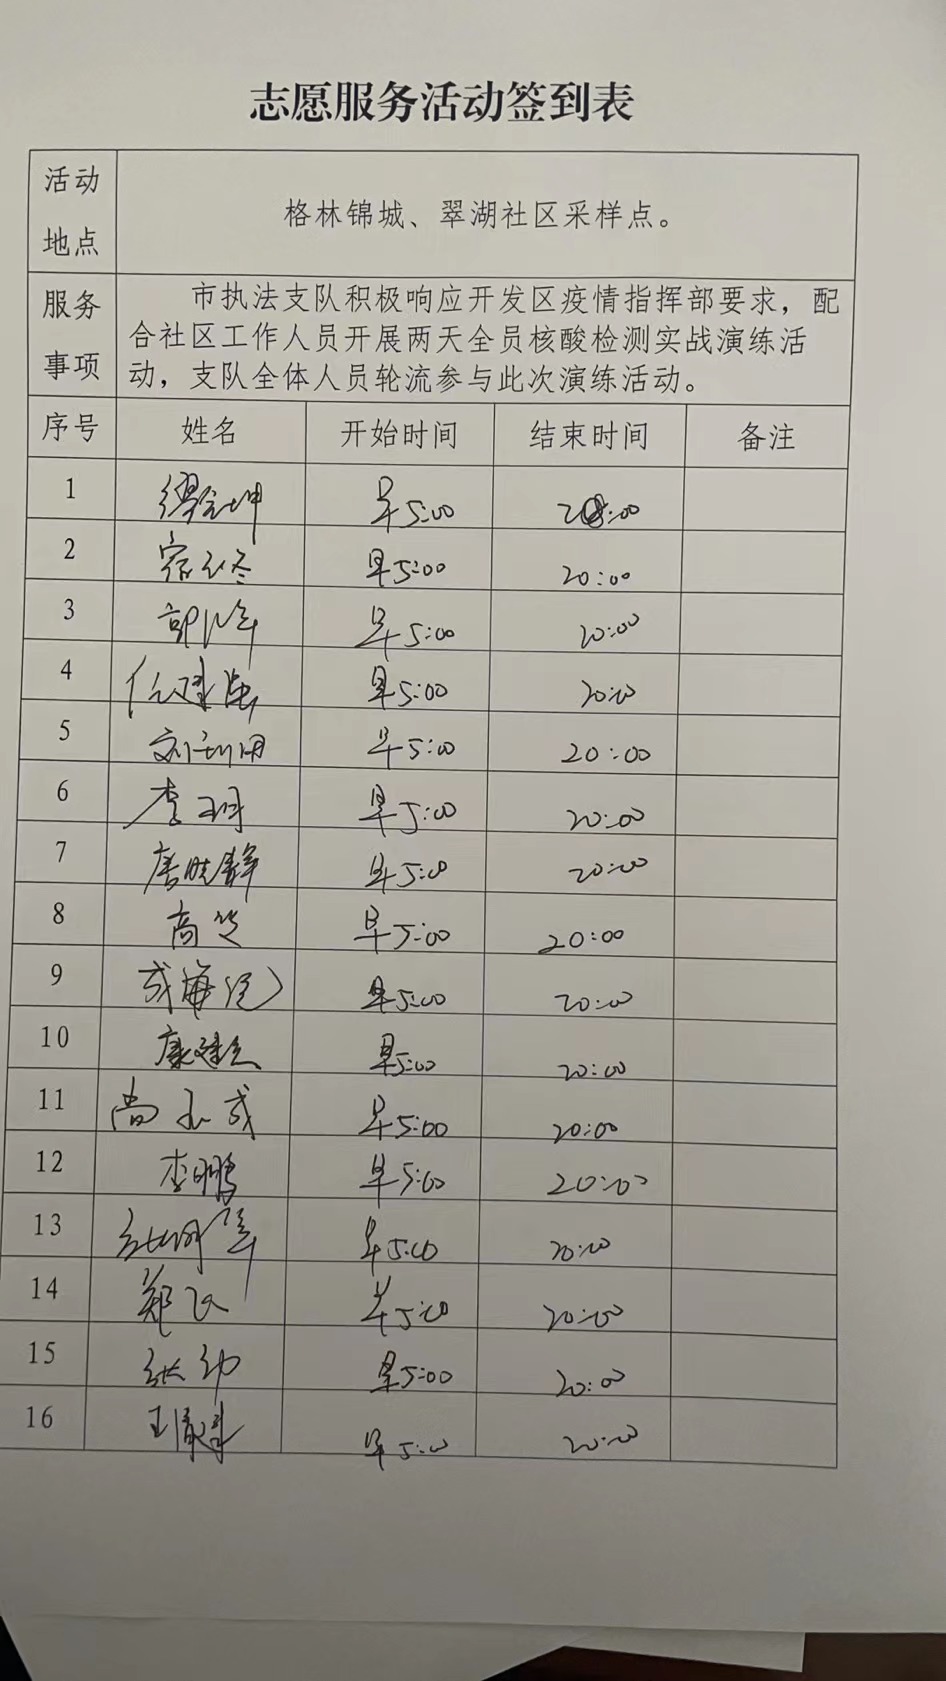 志愿服务活动签到表
活动地点 格林锦城、翠湖社区采样点。
服务事项 市执法支队积极响应开发区疫情指挥部要求，配
合社区工作人员开展两天全员核酸检测实战演练活
动，支队全体人员轮流参与此次演练活动。
序号 姓名 开始时间 结束时间 备注
1 早5:00 20:00
2 早5:00 20:00
3 早5:00 20:00
4 早5:00 20:00
5 早5:00 20:00
6 李 早5:00 20:00
7 唐晓静 早5:00 20:00
8 高 早5:00 20:00
9 早5:00 20:00
10 康建 早5:00 20:00
11 尚 早5:00 20:00
12 李鹏 早5:00 20:00
13 早5:00 20:00
14 郑 早5:00 20:00
15 张 早5:00 20:00
16 王 早5:00 20:00